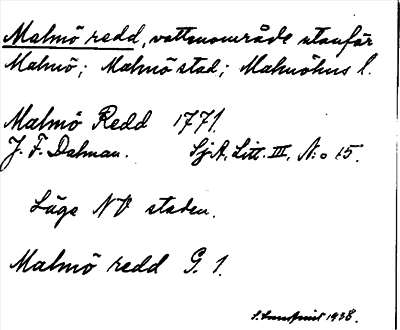 Malmö redd, vattenområde utanför
Malmö; Malmö stad; Malmöhus l.
Malmö Redd 1771.
J. F. Dalman. SjA, Litt. III, N:o 15.
Läge NV staden.
Malmö redd G. 1.
1938.